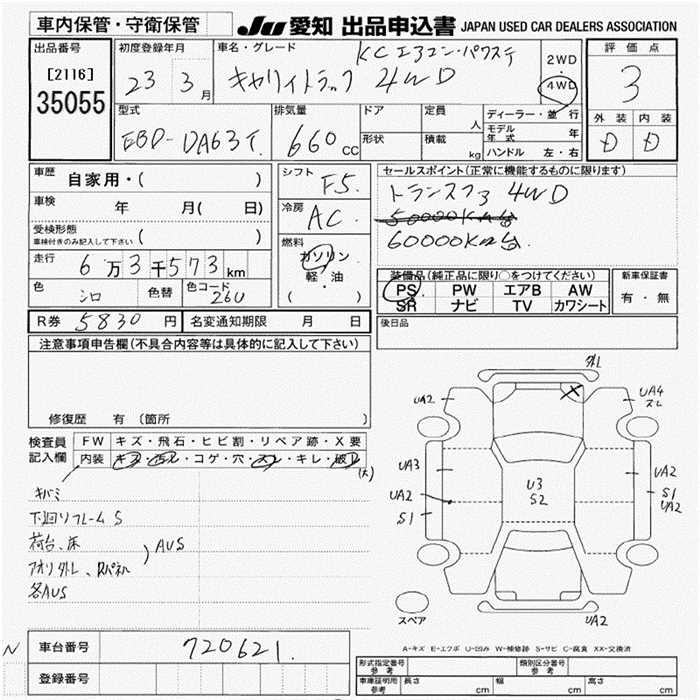 車内保管・守衛保管
JU 愛知 出品申込書 JAPAN USED CAR DEALERS ASSOCIATION
出品番号
[2116]
35055
初度登録年月
23 3月
車名・グレード
KCエアコン・パワステ
キャリィトラック 4WD
2WD
・
4WD
評価点
3
外装 内装
D D
型式
EBD-DA63T
排気量
660cc
ドア
形状
定員 人
積載 kg
ディーラー・並行
モデル年式 年
ハンドル 左・右
車歴 自家用・( )
車検 年 月( 日)
受検形態
車検付きのみ記入して下さい ( )
走行 6万3千573km
色 シロ
色替
色コード 26U
シフト F5
冷房 AC
燃料
ガソリン
軽・油
( )
セールスポイント(正常に機能するものに限ります)
トランスファ 4WD
50000Km台
60000Km台.
装備品(純正品に限り○をつけてください)
PS PW エアB AW
SR ナビ TV カワシート
新車保証書
有・無
R券 5830円
名変通知期限 月 日
後日品
注意事項申告欄(不具合内容等は具体的に記入して下さい)
修復歴 有 (箇所 )
検査員
記入欄
FW キズ・飛石・ヒビ割・リペア跡・X要
内装 キズ・汚れ・コゲ・穴・スレ・キレ・破レ
(大)
キバミ
下廻りフレームS
荷台、床
アオリ外し、Rパネル
AUS
各AUS
外し
UA2
UA4
スレ
UA3
UA2
S1
U3
S2
UA2
S1
UA2
UA2
スペア
A-キズ E-エクボ U-凹み W-補修跡 S-サビ C-腐食 XX-交換済
N
車台番号 720621.
登録番号
形式指定番号
参考
類別区分番号
参考
車庫証明用
参考
長さ cm 幅 cm 高さ cm